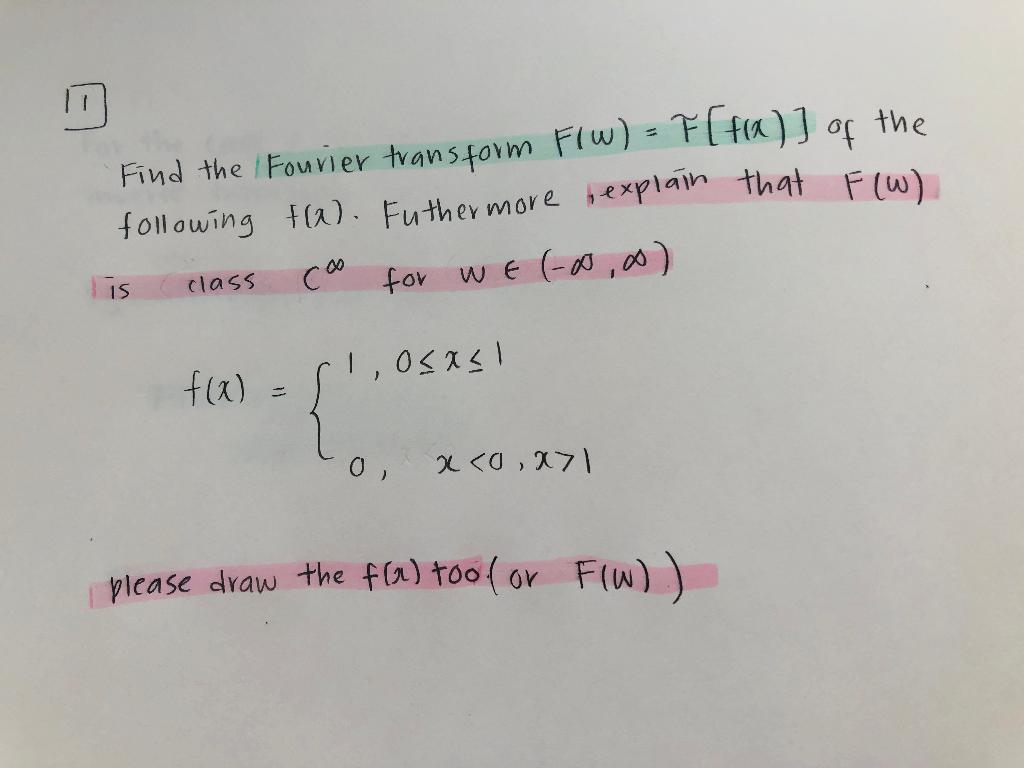 1
Find the Fourier transform F(w) = F[f(x)] of the
following f(x). Futhermore, explain that F(w)
is class C^∞ for w ∈ (-∞, ∞)
f(x) = { 1, 0 ≤ x ≤ 1
0, x < 0, x > 1
please draw the f(x) too (or F(w))